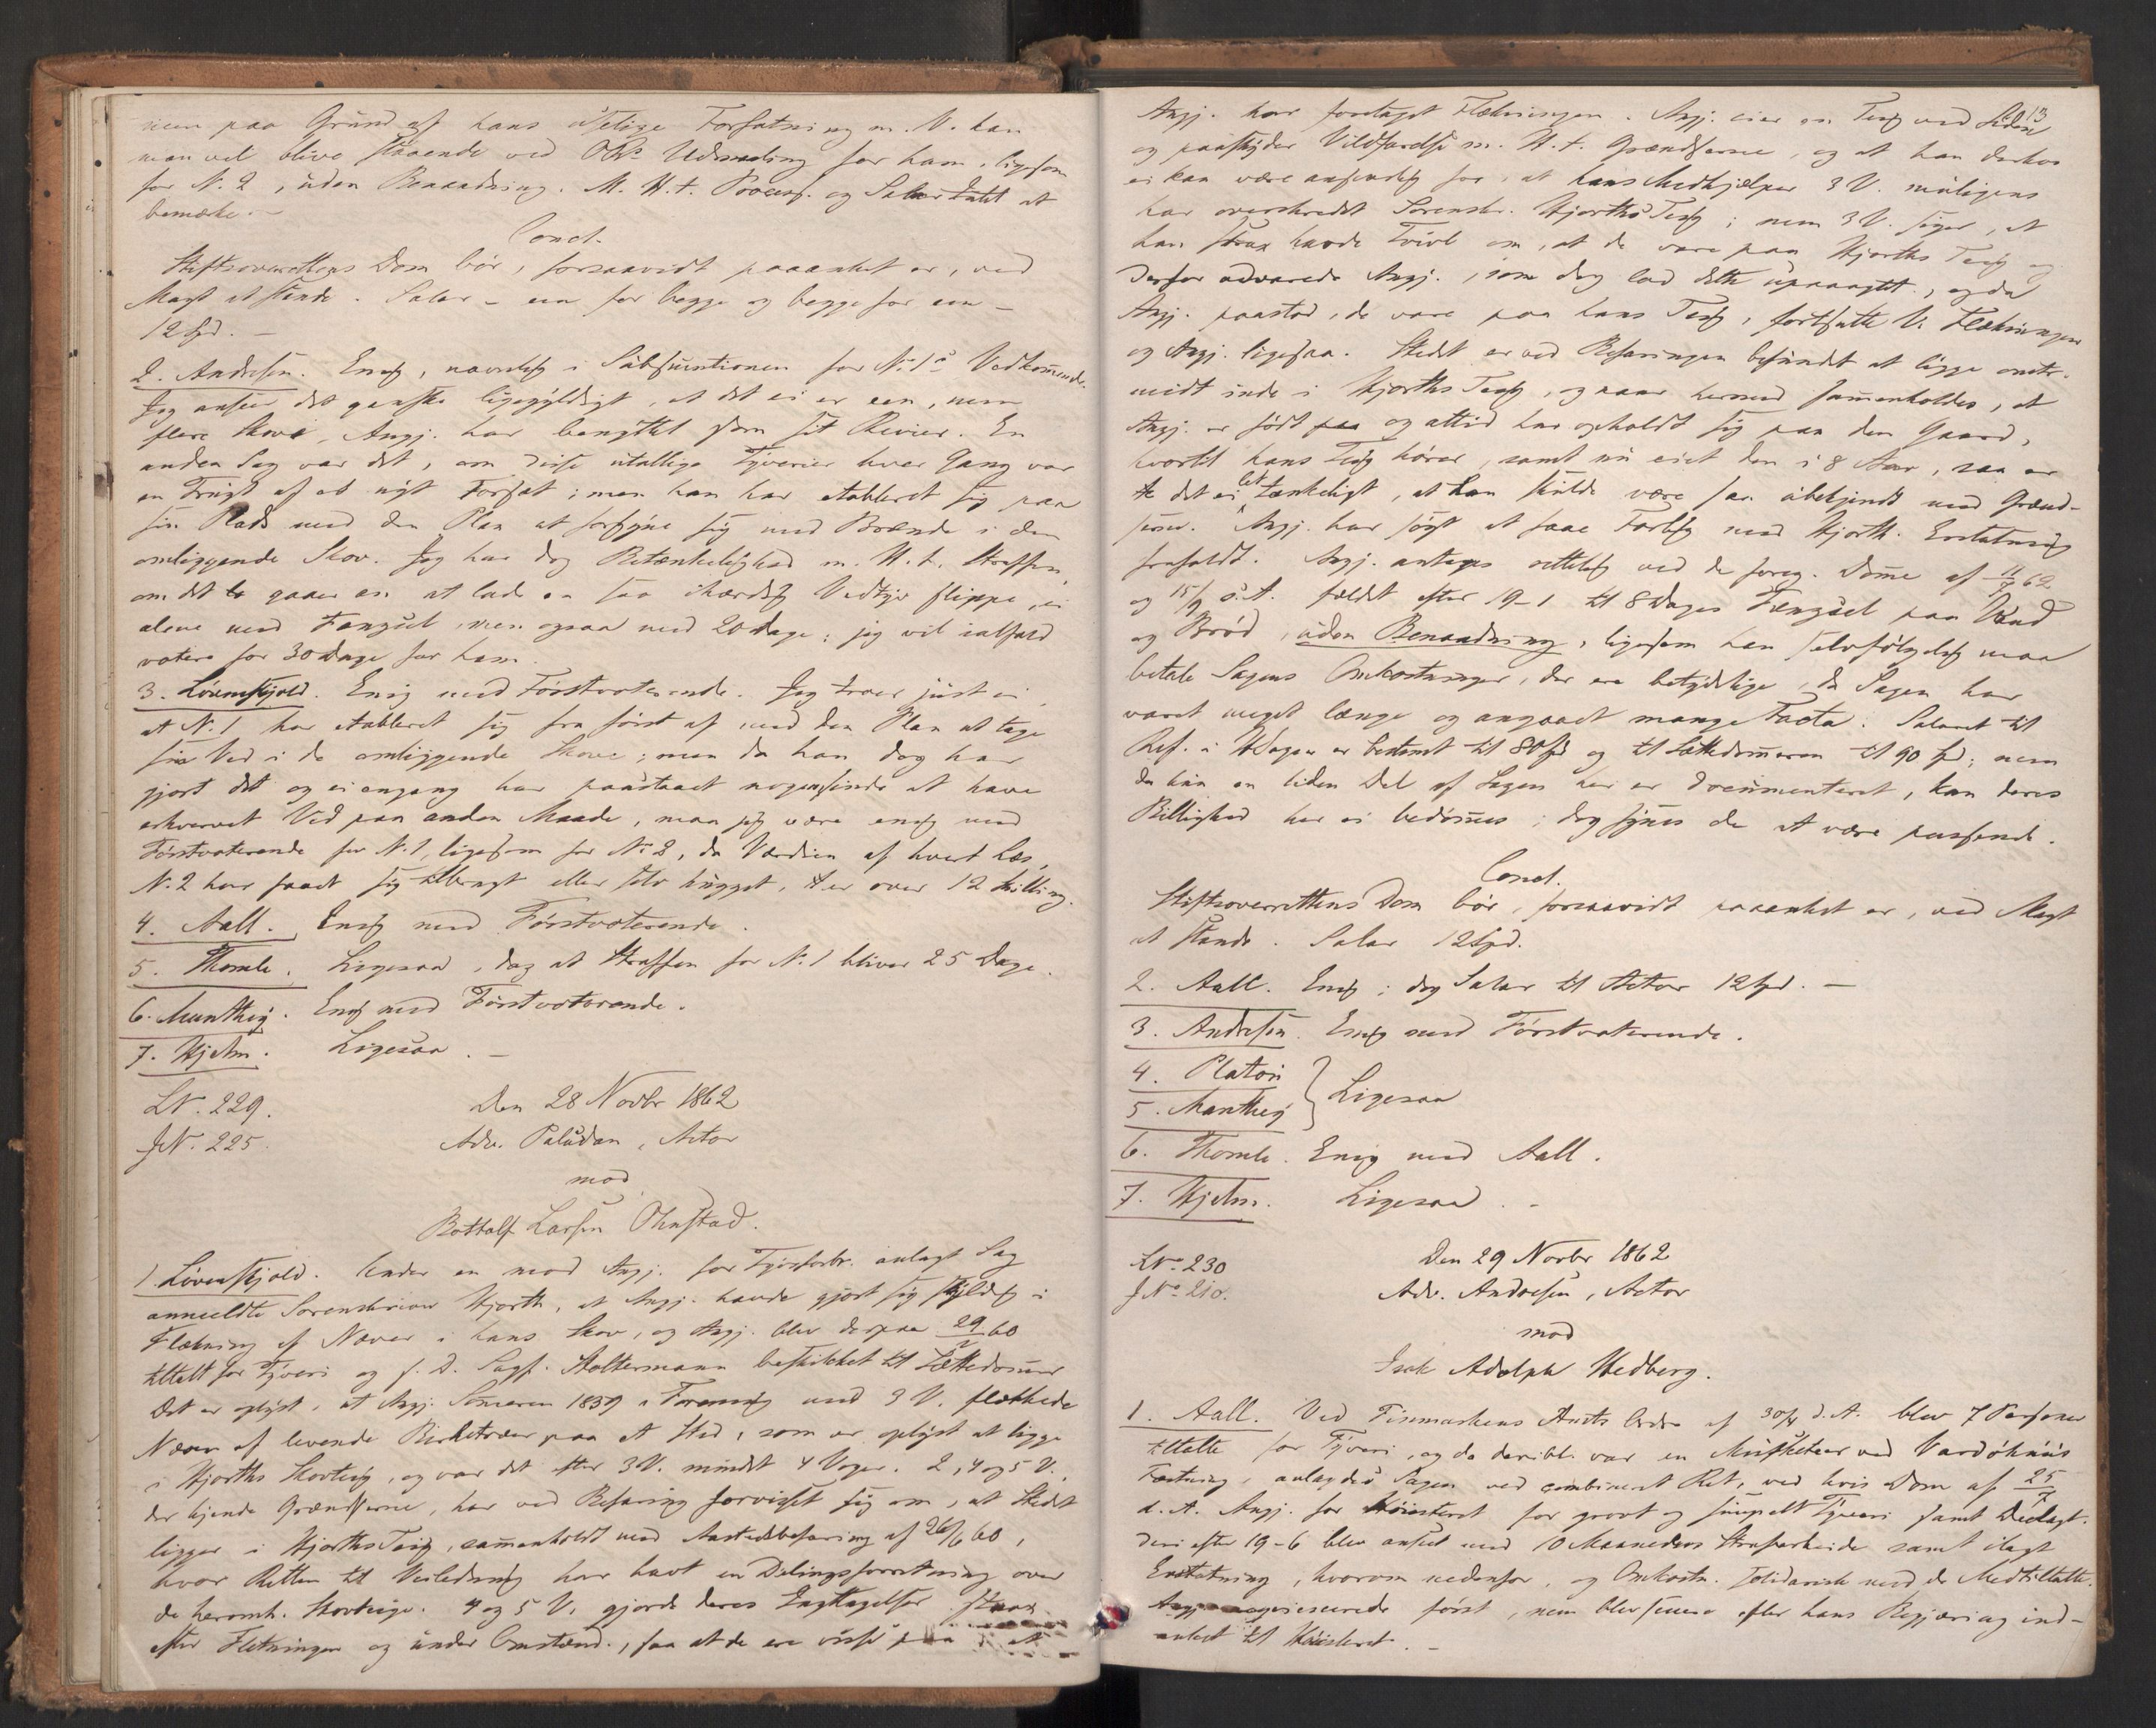 men paa Grund af hans uselige Forfatning m. V. kan
man vel blive staaende ved ORs Udmaaling for ham, ligesom
for N. 2, uden Benaadning. M. H. t. Proceds. og Salar Intet at
bemærke. –
Concl.
Stiftsoverrettens Dom bør, forsaavidt paaanket er, ved
Magt at stande. Salar – een for begge og begge for een –
12 Spd. –
2. Andresen. Enig, navnlig i Subsumtionen for N. 1s Vedkommende.
Jeg anseer det ganske ligegyldigt, at det ei er een, men
flere Skove, Angj. har benyttet som sit Revier. En
anden Sag var det, om disse utallige Tyverier hver Gang var
en Frugt af et nyt Forsæt; men han har etableret sig paa
sin Plads med den Plan at forsyne sig med Brænde i den
omliggende Skov. Jeg har dog Betænkelighed m. H. t. Straffen,
om det gaaer an at lade en saa ihærdig Vedtyv slippe, ei
alene med Fængsel, men ogsaa med 20 Dage; jeg vil ialfald
votere for 30 Dage for ham.
3. Løvenskjold. Enig med Førstvoterende. Jeg troer just ei,
at N. 1 har etableret sig fra først af med den Plan at tage
sin Ved i de omliggende Skove; men da han dog har
gjort det og ei engang har paastaaet nogensinde at have
erhvervet Ved paa anden Maade, maa jeg være enig med
Førstvoterende for N. 1, ligesom for N. 2, da Værdien af hvert Læs,
N. 2 har faaet sig tilbragt eller selv hugget, er over 12 Skilling.
4. Aall. Enig med Førstvoterende.
5. Thomle. Ligesaa, dog at Straffen for N. 1 bliver 25 Dage.
6. Manthey. Enig med Førstvoterende.
7. Hjelm. Ligesaa. –
LN. 229.
JN. 225.
Den 28 Novbr 1862
Adv. Paludan, Actor
mod
Bottolf Larsen Ohnstad.
1. Løvenskjold. Under en mod Angj. for Tyvsforbr. anlagt Sag
anmeldte Sorenskriver Hjorth, at Angj. havde gjort sig skyldig i
Flækning af Næver i hans Skov, og Angj. blev derpaa
tiltalt for Tyveri og s. D. Sagf. Stoltermann beskikket til Sættedommer
Det er oplyst, at Angj. Sommeren 1859 i Forening med 3 V. flækkede
Næver af levende Birketræer paa et Sted, som er oplyst at ligge
i Hjorths Skovteig, og var det efter 3 V. mindst 4 Voger. 2, 4 og 5 V.,
der kjende Grændserne, har ved Befaring forvisset sig om, at Stedet
ligger i Hjorths Teig, sammenholdt med Aastedsbefaring af 26/6 60,
hvor Retten til Veiledning har havt en Delingsforretning over
de heromh. Skovteige. 4 og 5 V. gjorde deres Iagttagelser strax
efter Flekningen og under Omstænd., saa at de ere visse paa at
13
Angj. har foretaget Flækningen. Angj. eier en Teig ved Siden
og paaskyder Vildfarelse m. H. t. Grændserne, og at han derhos
ei kan være ansvarlig for, at hans Medhjælper 3 V. muligens
har overskredet Sorenskr. Hjorths Teig; men 3 V. siger, at
han strax havde Tvivl om, at de vare paa Hjorths Teig og
derfor advarede Angj., som dog lod dette upaaagtet, og da
Angj. paastod, de vare paa hans Teig, fortsatte V. Flækningen
og Angj. ligesaa. Stedet er ved Befaringen befundet at ligge omtr.
midt inde i Hjorths Teig, og naar hermed sammenholdes, at
Angj. er født og altid har opholdt sig paa den Gaard,
hvortil hans Teig hører, samt nu eiet den i 8 Aar, saa er
det ei let tænkeligt, at han skulde være saa ubekjendt med Grænd-
serne. Angj. har søgt at faae Forlig med Hjorth. Erstatning
frafaldt. Angj. antages rettelig ved de foreg. Domme af
og 15/9 s. A. fældet efter 19-1 til 8 Dages Fængsel paa Vand
og Brød, uden Benaadning, ligesom han selvfølgelig maa
betale Sagens Omkostninger, der ere betydelige, da Sagen har
varet meget længe og angaaet mange Facta. Salaret til
Ref. i Sagen er bestemt til 80 Spd og til Sættedommeren til 90 Spd; men
da kun en liden Del af Sagen her er documenteret, kan deres
Billighed her ei bedømmes; dog synes de at være passende.
Concl.
Stiftsoverrettens Dom bør, forsaavidt paaanket er, ved Magt
at stande. Salar 12 Spd.
2. Aall. Enig; dog Salar til Actor 12 Spd. –
3. Andresen. Enig med Førstvoterende.
4. Platou
5. Manthey } Ligesaa
6. Thomle. Enig med Aall.
7. Hjelm. Ligesaa. –
LNo. 230
JNo. 210.
Den 29 Novbr 1862
Adv. Andresen, Actor
mod
Isak Adolph Hedberg.
1. Aall. Ved Finmarkens Amts Ordre af d. A. blev 7 Personer
tiltalte for Tyveri, og da deribl. var en Musketeer ved Vardøhuus
Fæstning, anlagdes Sagen ved combineret Ret, ved hvis Dom af
d. A. Angj. for Høiesteret for grovt og simpelt Tyveri samt Deelagt.
deri efter 19-6 blev anseet med 10 Maaneders Strafarbeide samt ilagt
Erstatning, hvorom nedenfor, og Omkostn. solidarisk med de Medtiltalte.
Angj. først, men blev senere efter hans Begjæring ind-
anket til Høiesteret. –